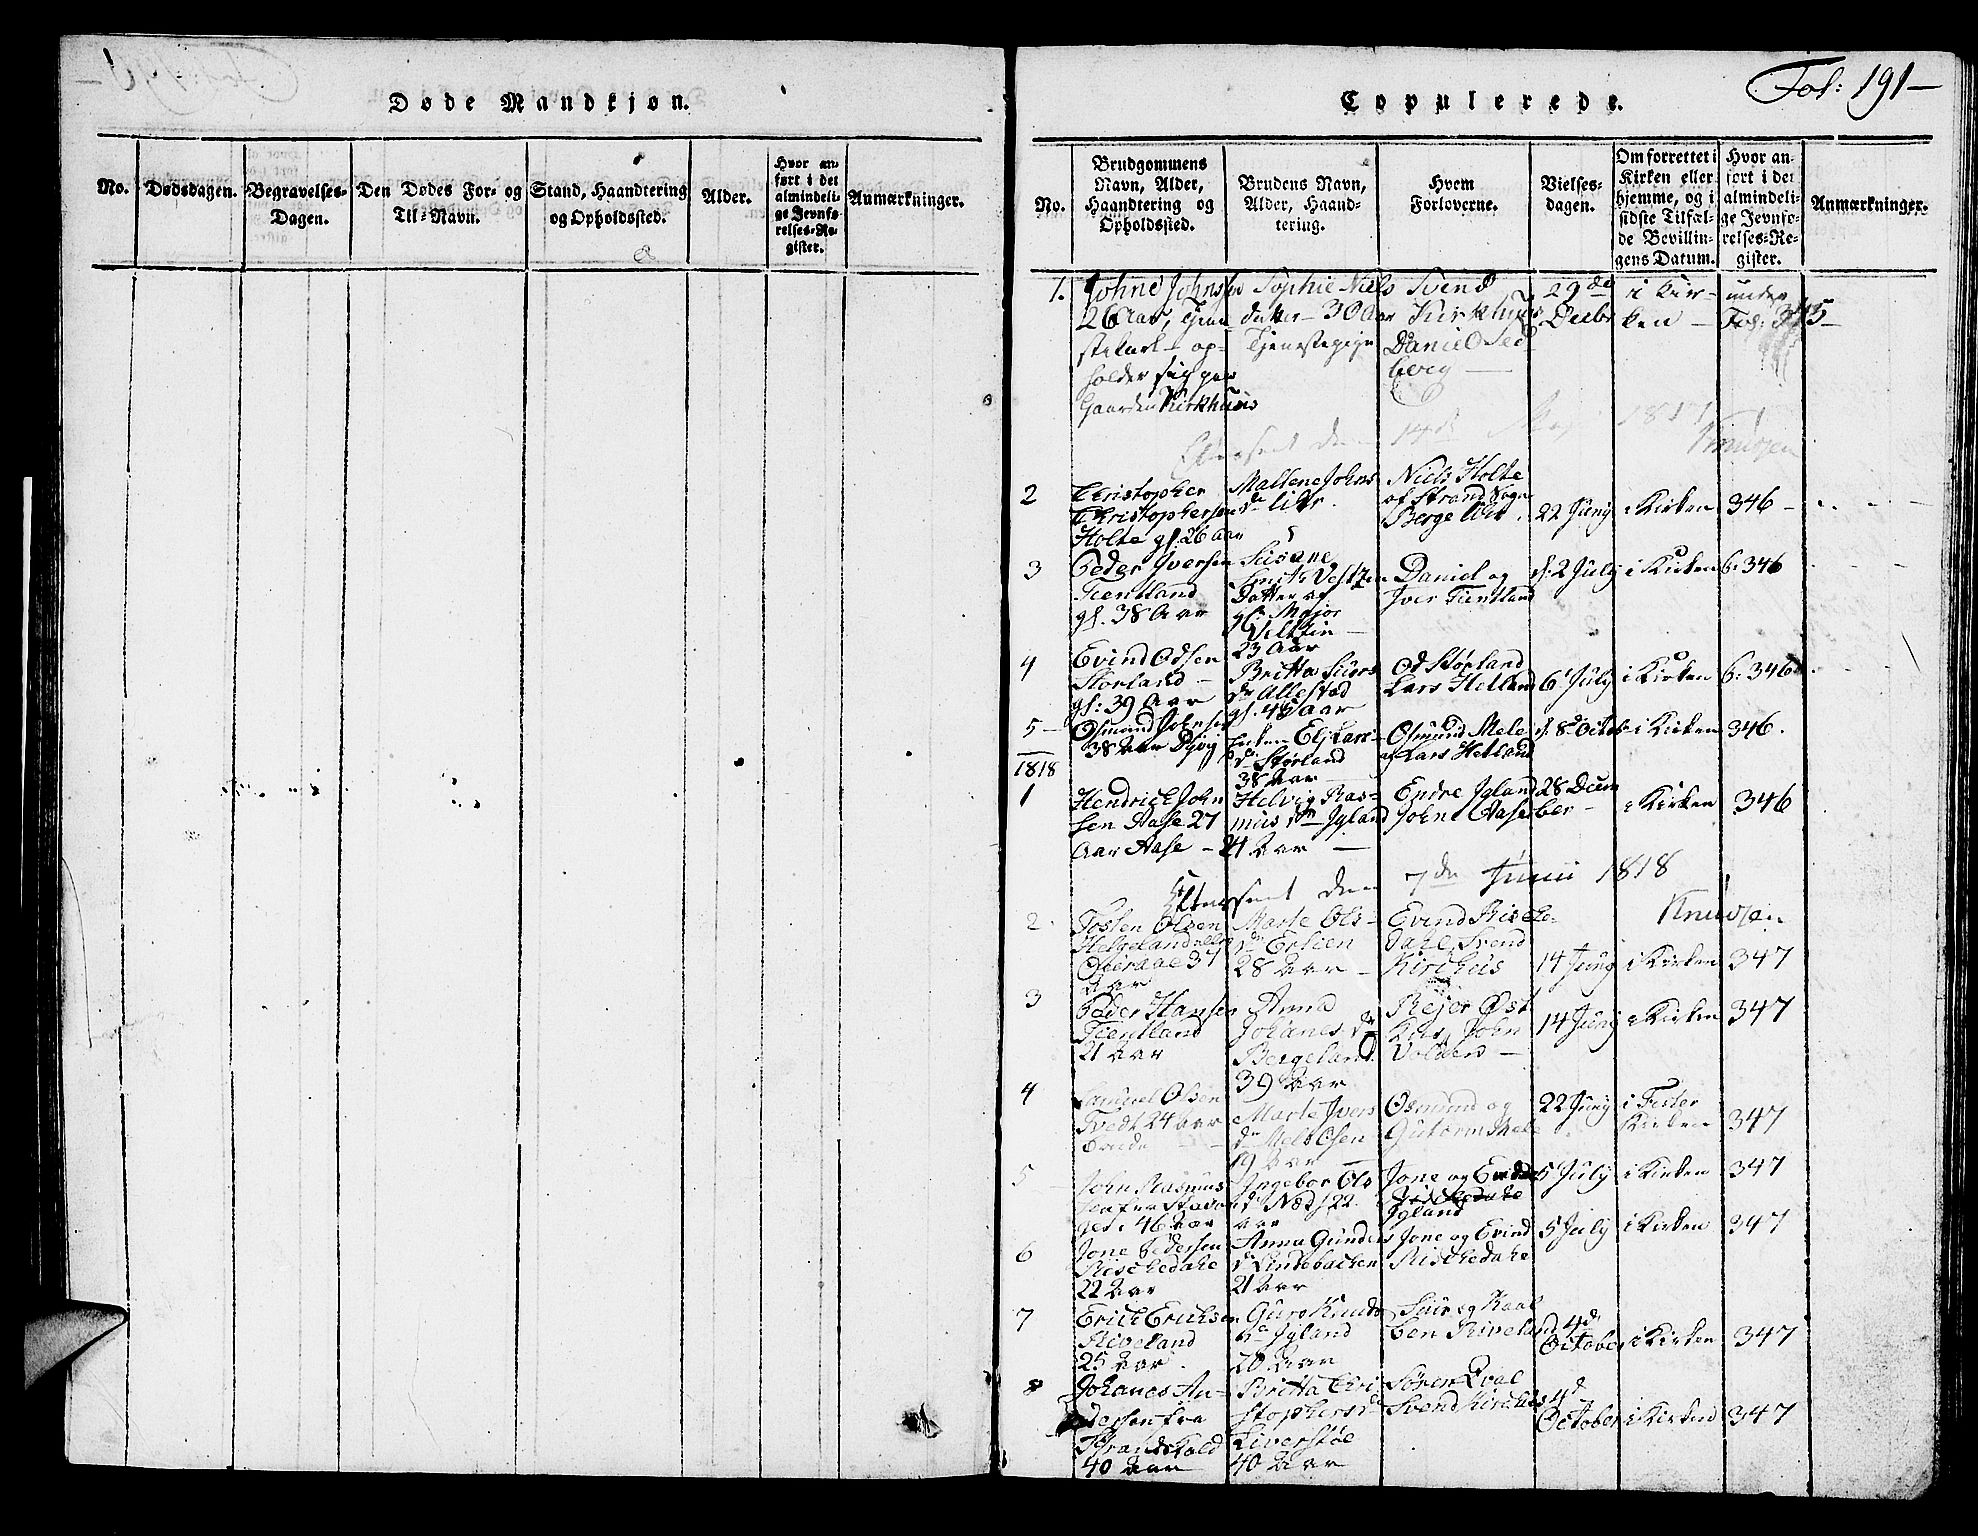 Døde Mandkjøn.
No.
Dødsdagen.
Begravelses-
Dagen.
Den Dødes For- og
Til-Navn.
Stand, Haandtering
og Opholdssted.
Alder.
Hvor an-
ført i det
almindeli-
ge Jevnfø-
relses-Re-
gister.
Anmærkninger.
Copulerede.
Fol: 191-
No.
Brudgommens
Navn, Alder,
Haandtering og
Opholdssted.
Brudens Navn,
Alder, Haand-
tering.
Hvem
Forloverne.
Vielses-
dagen.
Om forrettet i
Kirken eller
hjemme, og i
sidste Tilfæl-
de Bevillin-
gens Datum.
Hvor an-
ført i det
almindeli-
ge Jevnfø-
relses-Re-
gister.
Anmærkninger.
1.
Johne Johnsen
26 Aar, Tjene
stekarl - op-
holder sig paa
Gaarden Kirkhuus
Sophie Niels
datter - 30 Aar
Tjenestepige
Svend
Kirkhuus
Daniel Sed
berg
29de
Decbr
i Kir-
ken -
under
Fol: 345-
Efterseet den 14de May 1817
Knudsen
2
Christopher
Christophersen
Holte gl. 26 Aar
Mallene Johns
dr
Niels Holte
af Strand Sogn
Berge
22 Juny
i Kirken
346 -
3
Peder Iversen
Tientland
gl. 38 Aar
Susane
Datter af
Major
23 Aar
Daniel og
Iver Tientland
d. 2 July
i Kirken
6: 346
4
Evind Odsen
Störland -
gl: 39 Aar
Britta Siurs
dr Allestad
gl. 46 Aar
Od Störland
Lars Helland
6 July
i Kirken
6: 346
5
Osmund Johnsen
38 Aar
Enken Eli Lars
dr Störland
38 Aar
Osmund Mele
af Lars Hetland
d. 8de Octob
i Kirken
346.
1818
1
Hendrich John
sen Aase 27
Aar Aase -
Helvig Ras-
mus dr Igland
24 Aar
Endre Igland
John Aase
28 Decem
ber -
i Kirken
346
Efterseet den 7de Junii 1818
Knudsen
2
Tosten Olsen
37
Aar
Marte Ols-
dr
28 Aar -
Evind Riske-
dahl, Svend
Kirchus
14 Juny
i Kirken
347
3
Peder Hansen
Tientland
21 Aar
Anna
Johanes dr
Bergeland
39 Aar
Rejer Øst
John
Volden -
14 Juny
i Kirken
347
4
Samuel Olsen
Tvedt 24 Aar
Marte Ivers
dr
19 Aar
Osmund og
Gutorm Mele
22 Juny
i Fister
Kirken
347
5
John Rasmus
sen fra
46 Aar
Ingebor Ols
dr Næs 22
Aar
Jone og Evind
Igland
5 July
i Kirken
347
6
Jone Pedersen
Rischedahl
22 Aar
Anna Gunders
dr Lindebacken
21 Aar
Jone og Evind
Rischedahl
5 July
i Kirken
347
7
Erich Ericksen
Riveland
25 Aar
Guro Knuds
dr Igland
20 Aar
Siur og Kaal
ben Riveland
4de
October
i Kirken
347
8
Johanes An-
dersen fra
40 Aar
Britta Chri
stophers dr
40 Aar
Søren Qval
Svend Kirchus
4d
October
i Kirken
347